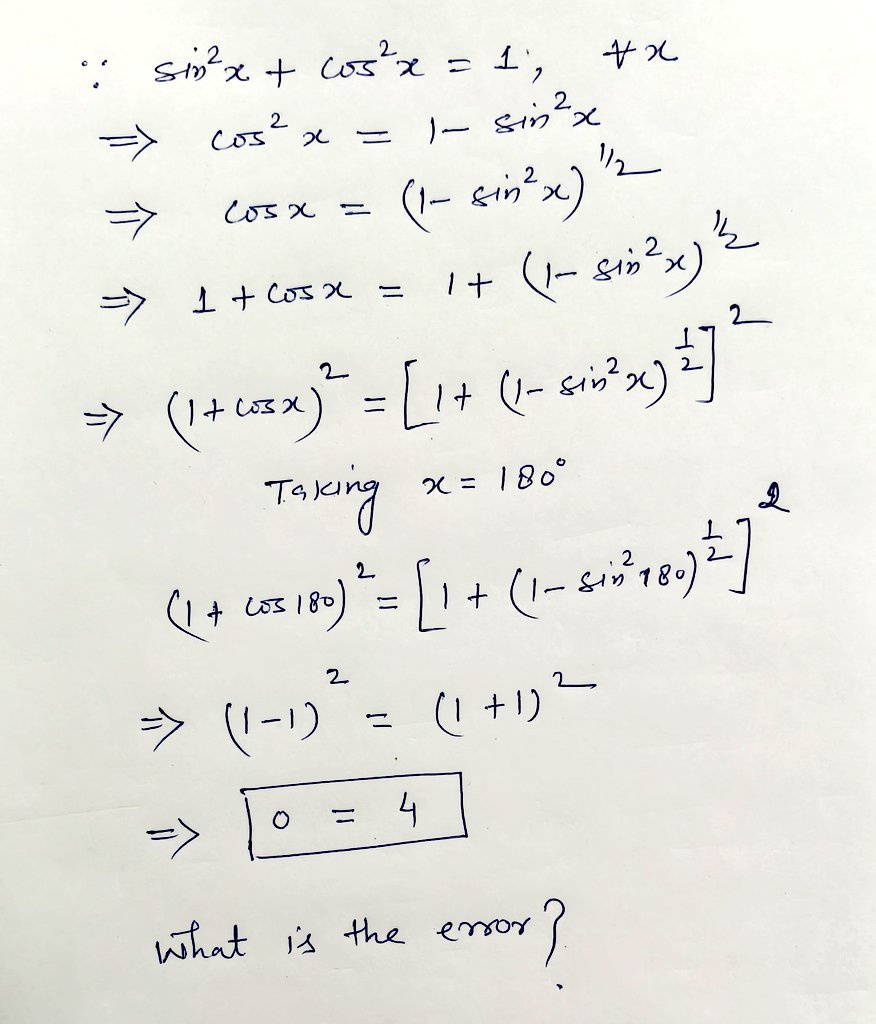 ∵ sin²x + cos²x = 1, ∀x
⇒ cos²x = 1 - sin²x
⇒ cosx = (1 - sin²x)^1/2
⇒ 1 + cosx = 1 + (1 - sin²x)^1/2
⇒ (1 + cosx)² = [1 + (1 - sin²x)^1/2]²
Taking x = 180°
(1 + cos180)² = [1 + (1 - sin²180)^1/2]²
⇒ (1-1)² = (1+1)²
⇒ 0 = 4
What is the error?